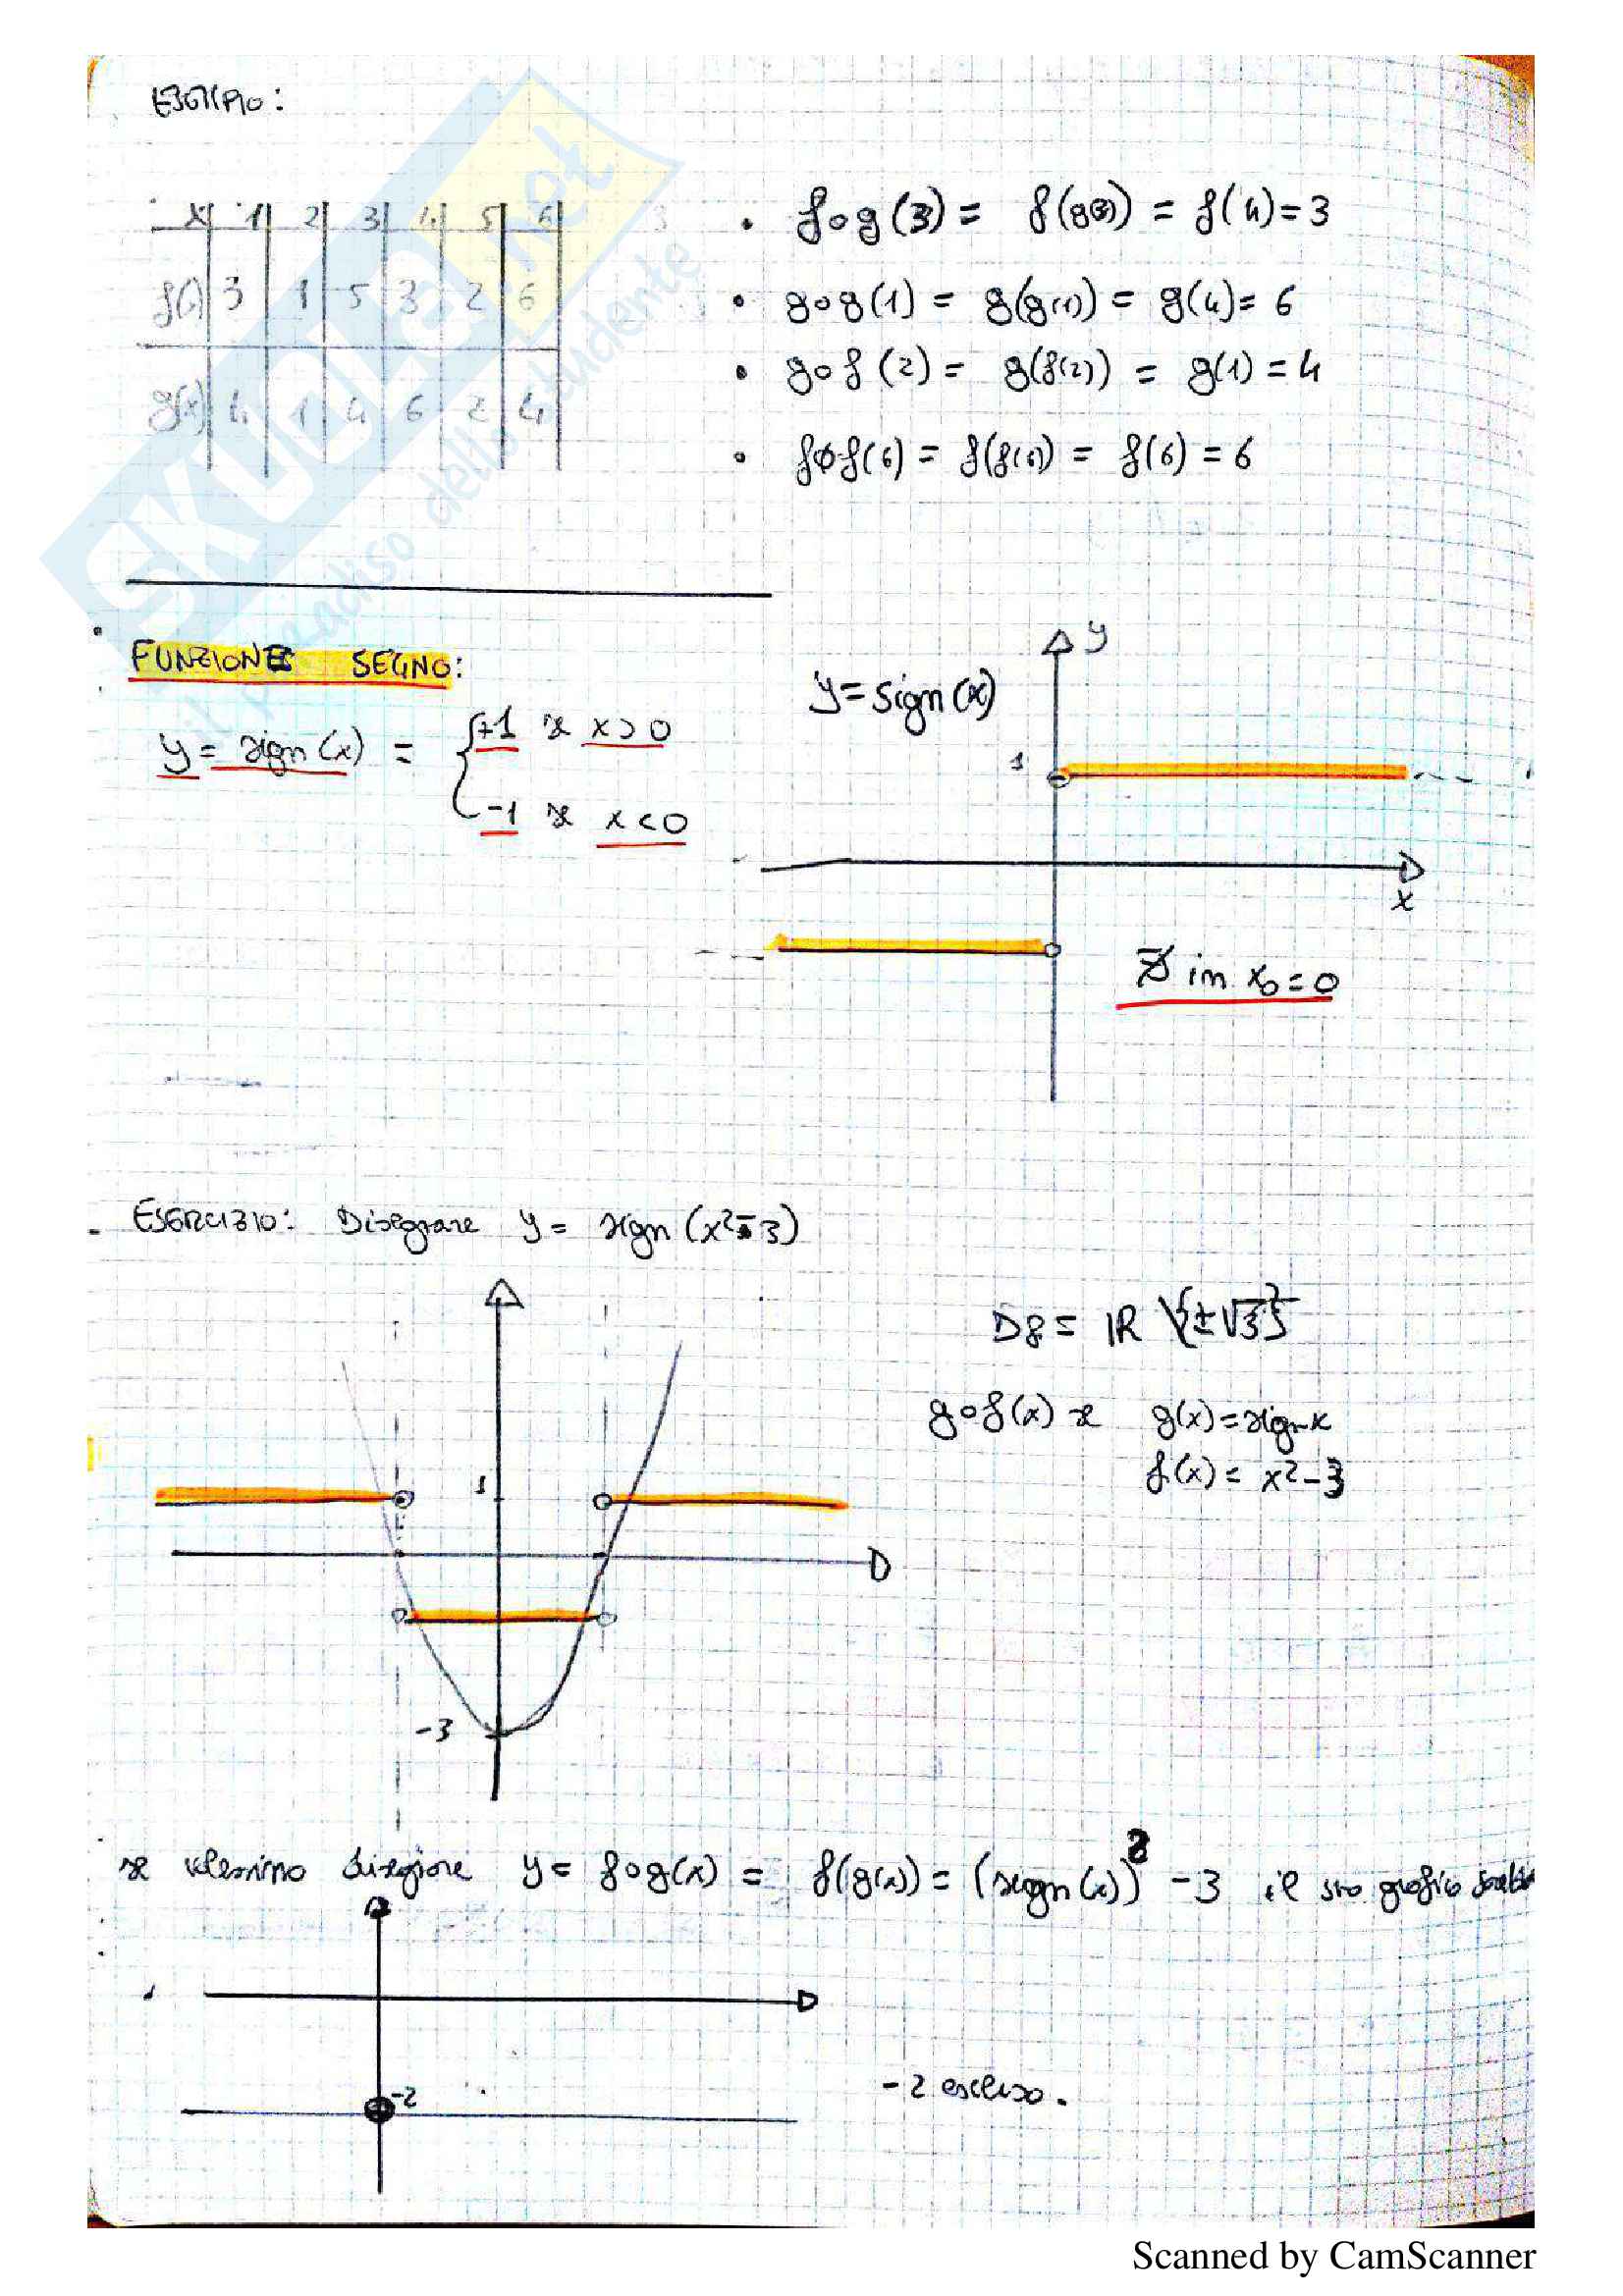 ESEMPIO:
x 1 2 3 4 5 6
f(x) 3 1 5 3 2 6
g(x) 4 1 4 6 2 4
• f∘g(3) = f(g(3)) = f(4) = 3
• g∘g(1) = g(g(1)) = g(4) = 6
• g∘f(2) = g(f(2)) = g(1) = 4
• f∘f(6) = f(f(6)) = f(6) = 6
SKUOLA.net
il paradiso dello studente
FUNZIONE SEGNO:
y = sign(x) = { +1 se x>0
-1 se x<0
y = sign(x)
y
1
x
∄ in x₀=0
ESERCIZIO: Disegnare y = sign(x²-3)
Df = ℝ \{±√3}
g∘f(x) se g(x) = sign x
f(x) = x²-3
1
-3
se volessimo disegnare y = f∘g(x) = f(g(x)) = (sign(x))² -3 il suo grafico
-2
-2 escluso.
Scanned by CamScanner